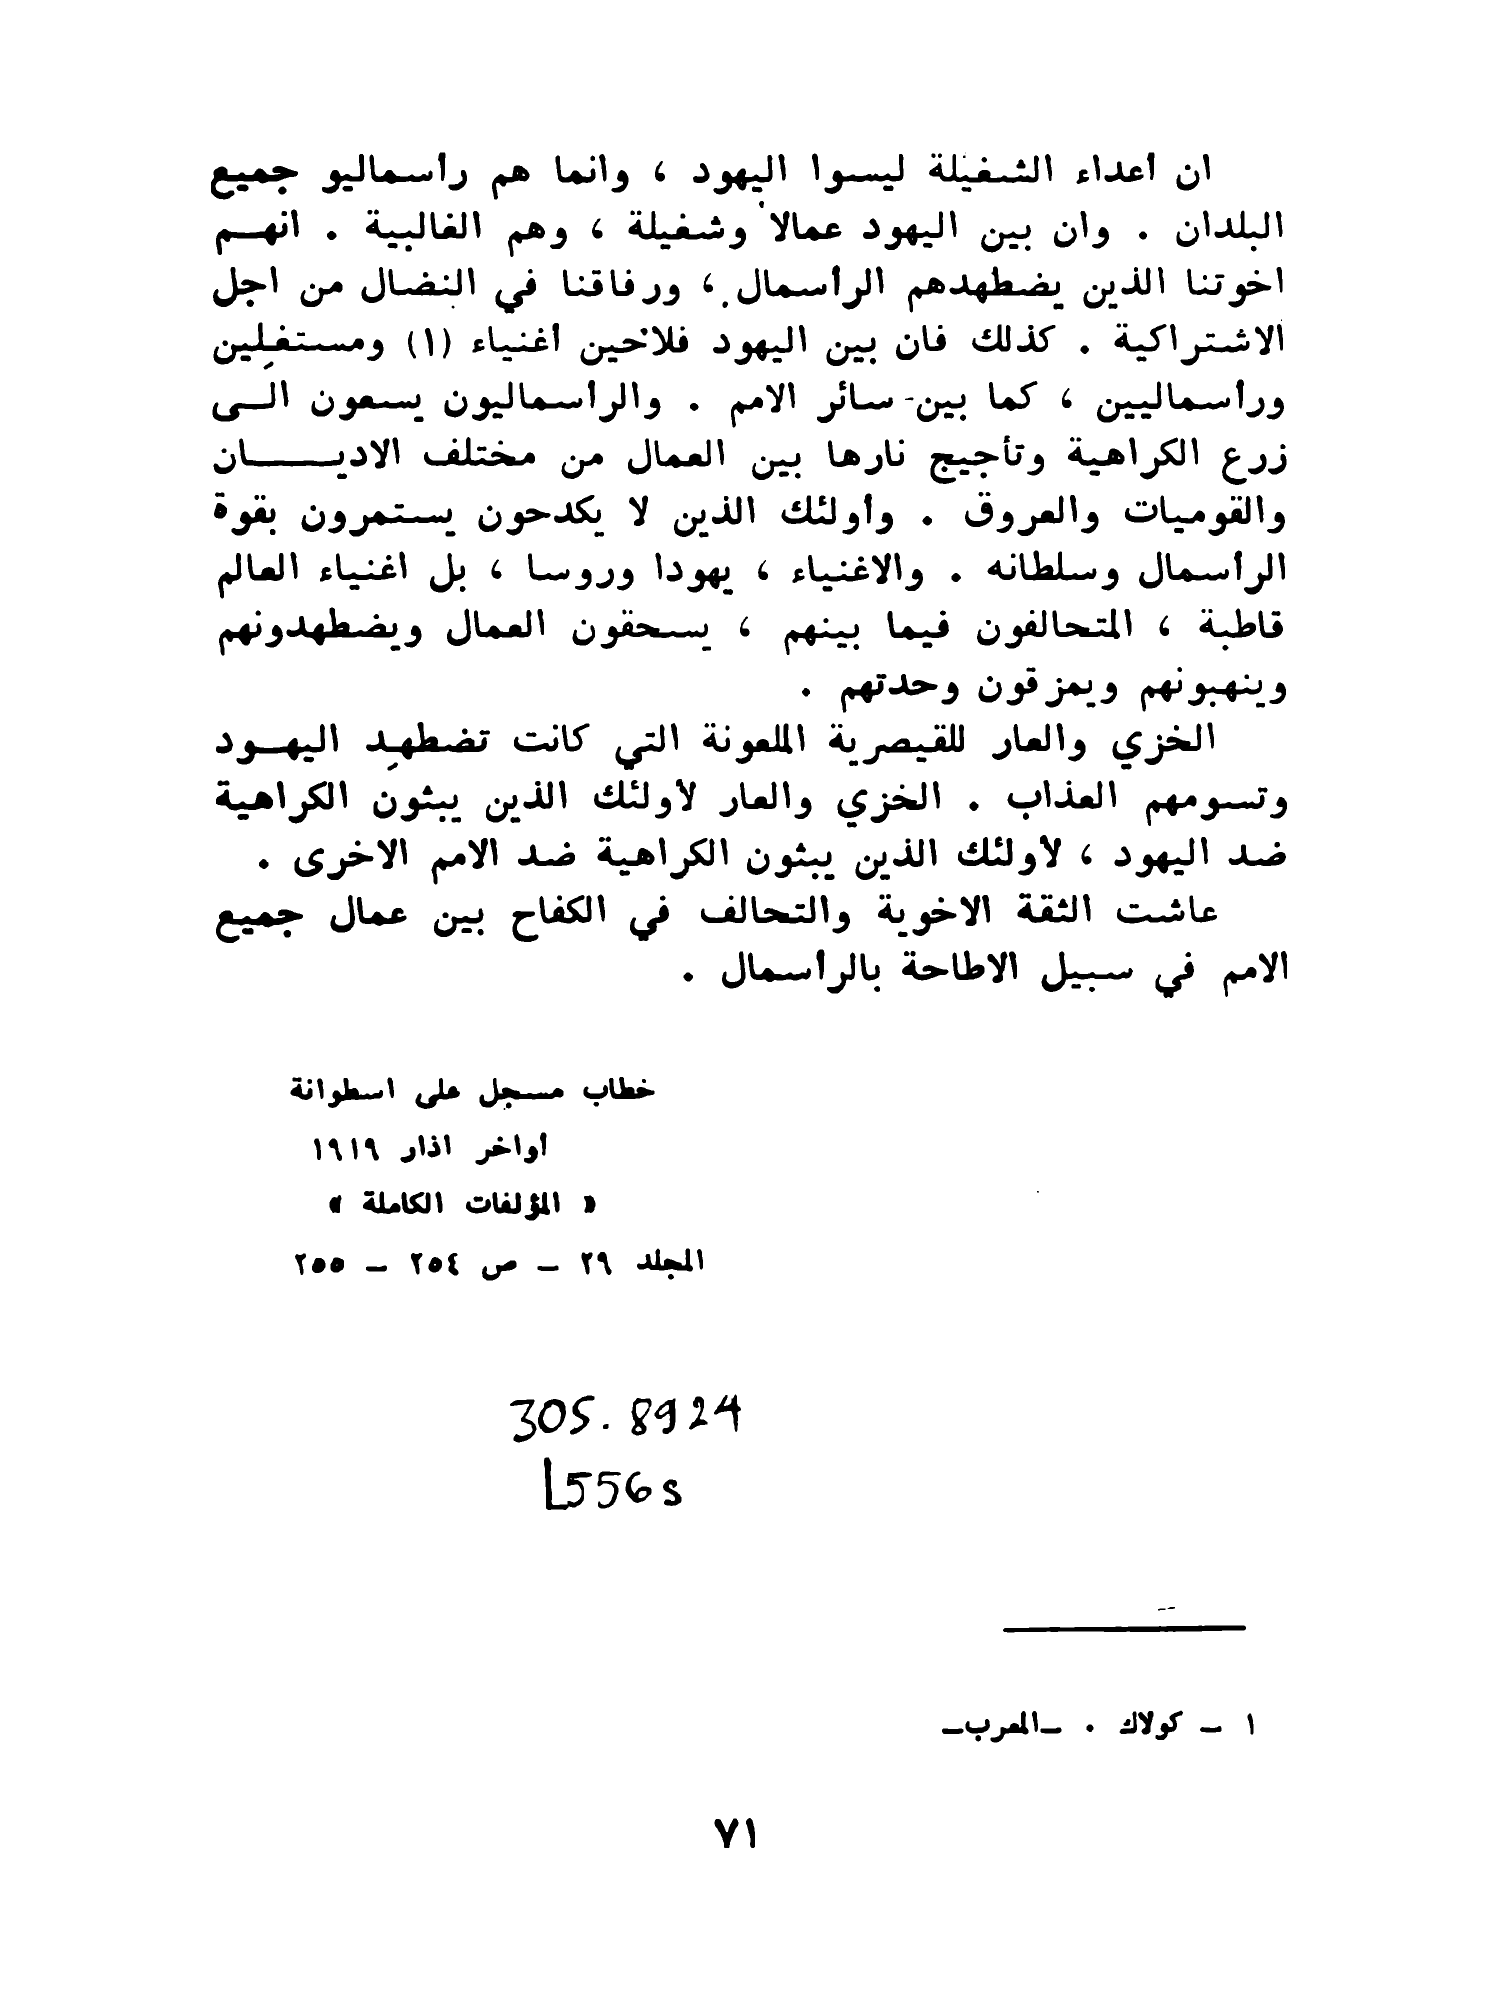 ان أعداء الشغيلة ليسوا اليهود ، وانما هم رأسماليو جميع
البلدان . وان بين اليهود عمالا وشغيلة ، وهم الغالبية . انهــم
اخوتنا الذين يضطهدهم الرأسمال ، ورفاقنا في النضال من اجل
الاشتراكية . كذلك فان بين اليهود فلاحين أغنياء (١) ومستغلِين
ورأسماليين ، كما بين سائر الامم . والرأسماليون يسعون الــى
زرع الكراهية وتأجيج نارها بين العمال من مختلف الاديـــــان
والقوميات والعروق . وأولئك الذين لا يكدحون يستمرون بقوة
الرأسمال وسلطانه . والاغنياء ، يهودا وروسا ، بل اغنياء العالم
قاطبة ، المتحالفون فيما بينهم ، يسحقون العمال ويضطهدونهم
وينهبونهم ويمزقون وحدتهم .
الخزي والعار للقيصرية الملعونة التي كانت تضطهِد اليهــود
وتسومهم العذاب . الخزي والعار لأولئك الذين يبثون الكراهية
ضد اليهود ، لأولئك الذين يبثون الكراهية ضد الامم الاخرى .
عاشت الثقة الاخوية والتحالف في الكفاح بين عمال جميع
الامم في سبيل الاطاحة بالرأسمال .
خطاب مسجل على اسطوانة
أواخر اذار ١٩١٩
« المؤلفات الكاملة »
المجلد ٢٩ – ص ٢٥٤ – ٢٥٥
305.8924
L556s
١ – كولاك . –المعرب–
٧١